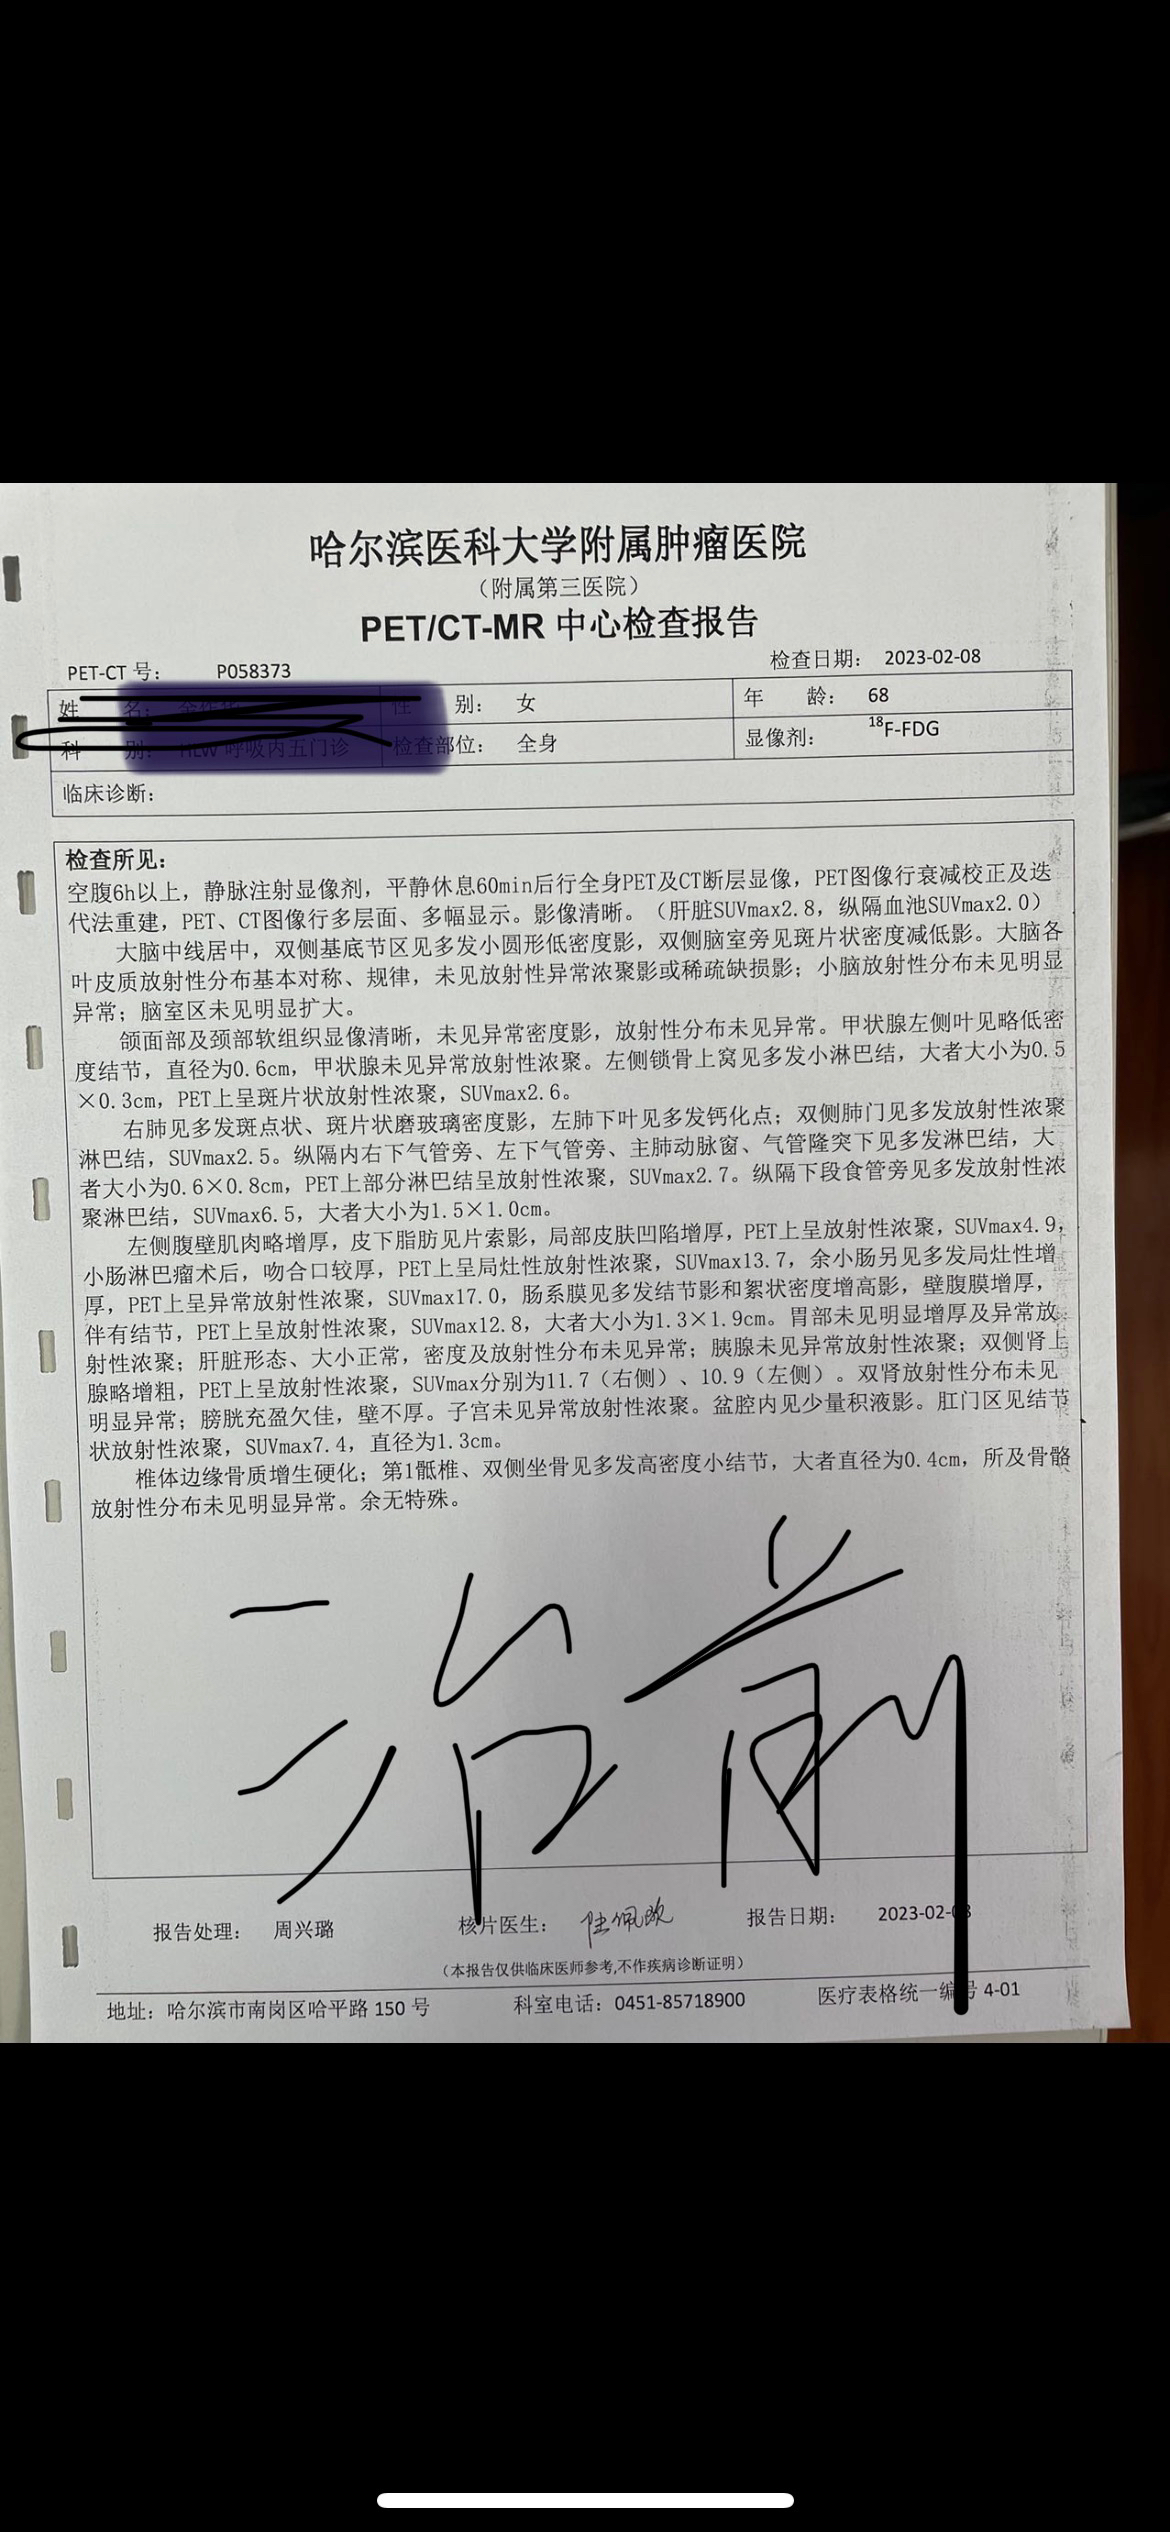 哈尔滨医科大学附属肿瘤医院
（附属第三医院）
PET/CT-MR 中心检查报告
PET-CT 号： P058373 检查日期： 2023-02-08
姓 名： 性 别： 女 年 龄： 68
科 别： 呼吸内五门诊 检查部位： 全身 显像剂： ¹⁸F-FDG
临床诊断：
检查所见：
空腹6h以上，静脉注射显像剂，平静休息60min后行全身PET及CT断层显像，PET图像行衰减校正及迭
代法重建，PET、CT图像行多层面、多幅显示。影像清晰。（肝脏SUVmax2.8，纵隔血池SUVmax2.0）
大脑中线居中，双侧基底节区见多发小圆形低密度影，双侧脑室旁见斑片状密度减低影。大脑各
叶皮质放射性分布基本对称、规律，未见放射性异常浓聚影或稀疏缺损影；小脑放射性分布未见明显
异常；脑室区未见明显扩大。
颌面部及颈部软组织显像清晰，未见异常密度影，放射性分布未见异常。甲状腺左侧叶见略低密
度结节，直径为0.6cm，甲状腺未见异常放射性浓聚。左侧锁骨上窝见多发小淋巴结，大者大小为0.5
×0.3cm，PET上呈斑片状放射性浓聚，SUVmax2.6。
右肺见多发斑点状、斑片状磨玻璃密度影，左肺下叶见多发钙化点；双侧肺门见多发放射性浓聚
淋巴结，SUVmax2.5。纵隔内右下气管旁、左下气管旁、主肺动脉窗、气管隆突下见多发淋巴结，大
者大小为0.6×0.8cm，PET上部分淋巴结呈放射性浓聚，SUVmax2.7。纵隔下段食管旁见多发放射性浓
聚淋巴结，SUVmax6.5，大者大小为1.5×1.0cm。
左侧腹壁肌肉略增厚，皮下脂肪见片索影，局部皮肤凹陷增厚，PET上呈放射性浓聚，SUVmax4.9，
小肠淋巴瘤术后，吻合口较厚，PET上呈局灶性放射性浓聚，SUVmax13.7，余小肠另见多发局灶性增
厚，PET上呈异常放射性浓聚，SUVmax17.0，肠系膜见多发结节影和絮状密度增高影，壁腹膜增厚，
伴有结节，PET上呈放射性浓聚，SUVmax12.8，大者大小为1.3×1.9cm。胃部未见明显增厚及异常放
射性浓聚；肝脏形态、大小正常，密度及放射性分布未见异常；胰腺未见异常放射性浓聚；双侧肾上
腺略增粗，PET上呈放射性浓聚，SUVmax分别为11.7（右侧）、10.9（左侧）。双肾放射性分布未见
明显异常；膀胱充盈欠佳，壁不厚。子宫未见异常放射性浓聚。盆腔内见少量积液影。肛门区见结节
状放射性浓聚，SUVmax7.4，直径为1.3cm。
椎体边缘骨质增生硬化；第1骶椎、双侧坐骨见多发高密度小结节，大者直径为0.4cm，所及骨骼
放射性分布未见明显异常。余无特殊。
治前
报告处理： 周兴璐 核片医生： 报告日期： 2023-02-08
（本报告仅供临床医师参考,不作疾病诊断证明）
地址：哈尔滨市南岗区哈平路 150 号 科室电话：0451-85718900 医疗表格统一编号 4-01